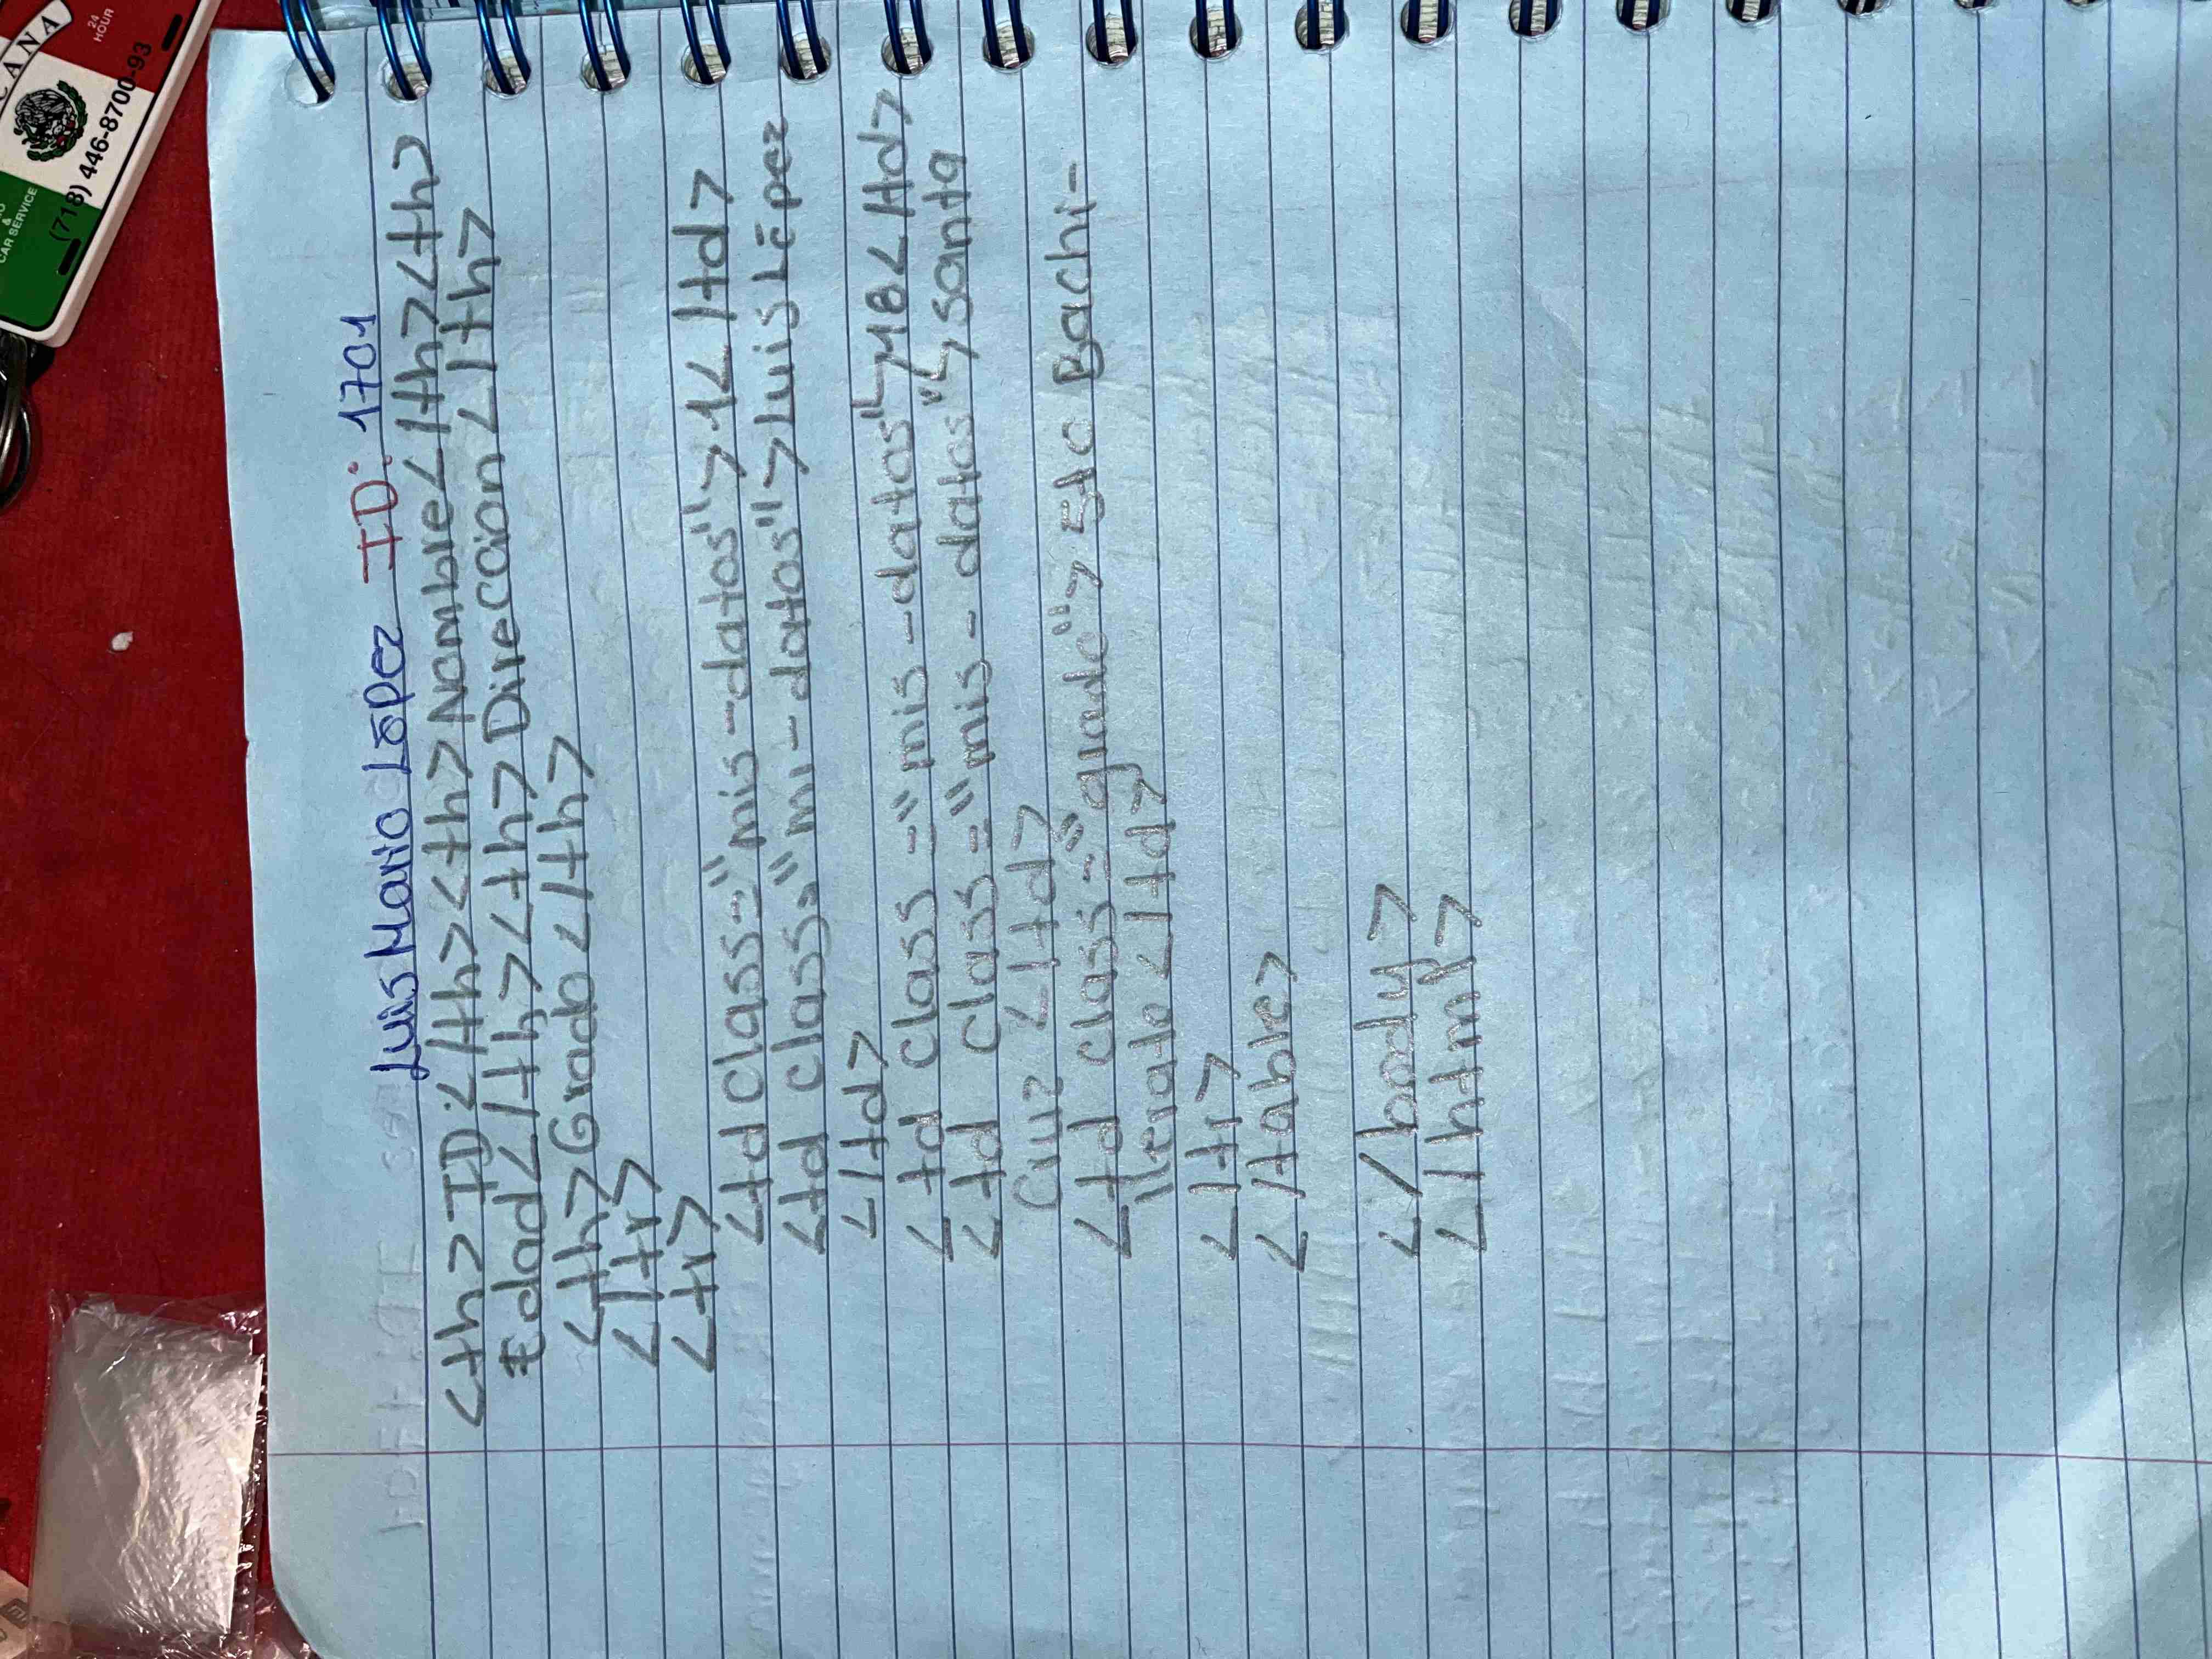 Luis Mario López ID: 1701
<th>ID:</th><th>Nombre</th><th>
Edad</th><th>Dirección</th>
<th>Grado</th>
</tr>
<tr>
<td class="mis-datos">1</td>
<td class="mi-datos">Luis López
</td>
<td class="mis-datos">18</td>
<td class="mis-datos">santa
Cruz</td>
<td class="grado">5to Bachi-
llerato</td>
</tr>
</table>
</body>
</html>
ANA
24
HOUR
&
CAR SERVICE
(718) 446-8700-93